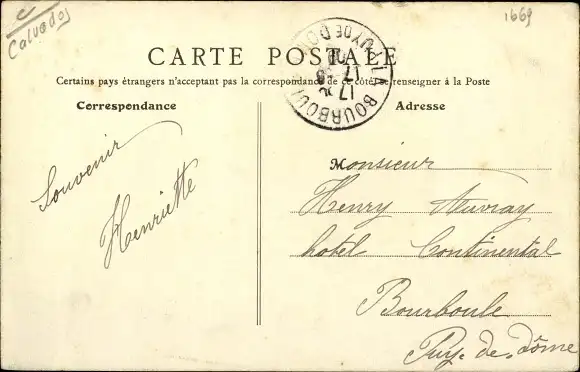 Calvados
1669
CARTE POSTALE
Certains pays étrangers n'acceptant pas la correspondance de ce côté se renseigner à la Poste
Correspondance
Adresse
LA BOURBOULE
PUY DE DOME
17
Souvenir
Henriette
Monsieur
Henry Auvray
hotel Continental
Bourboule
Puy-de-dôme